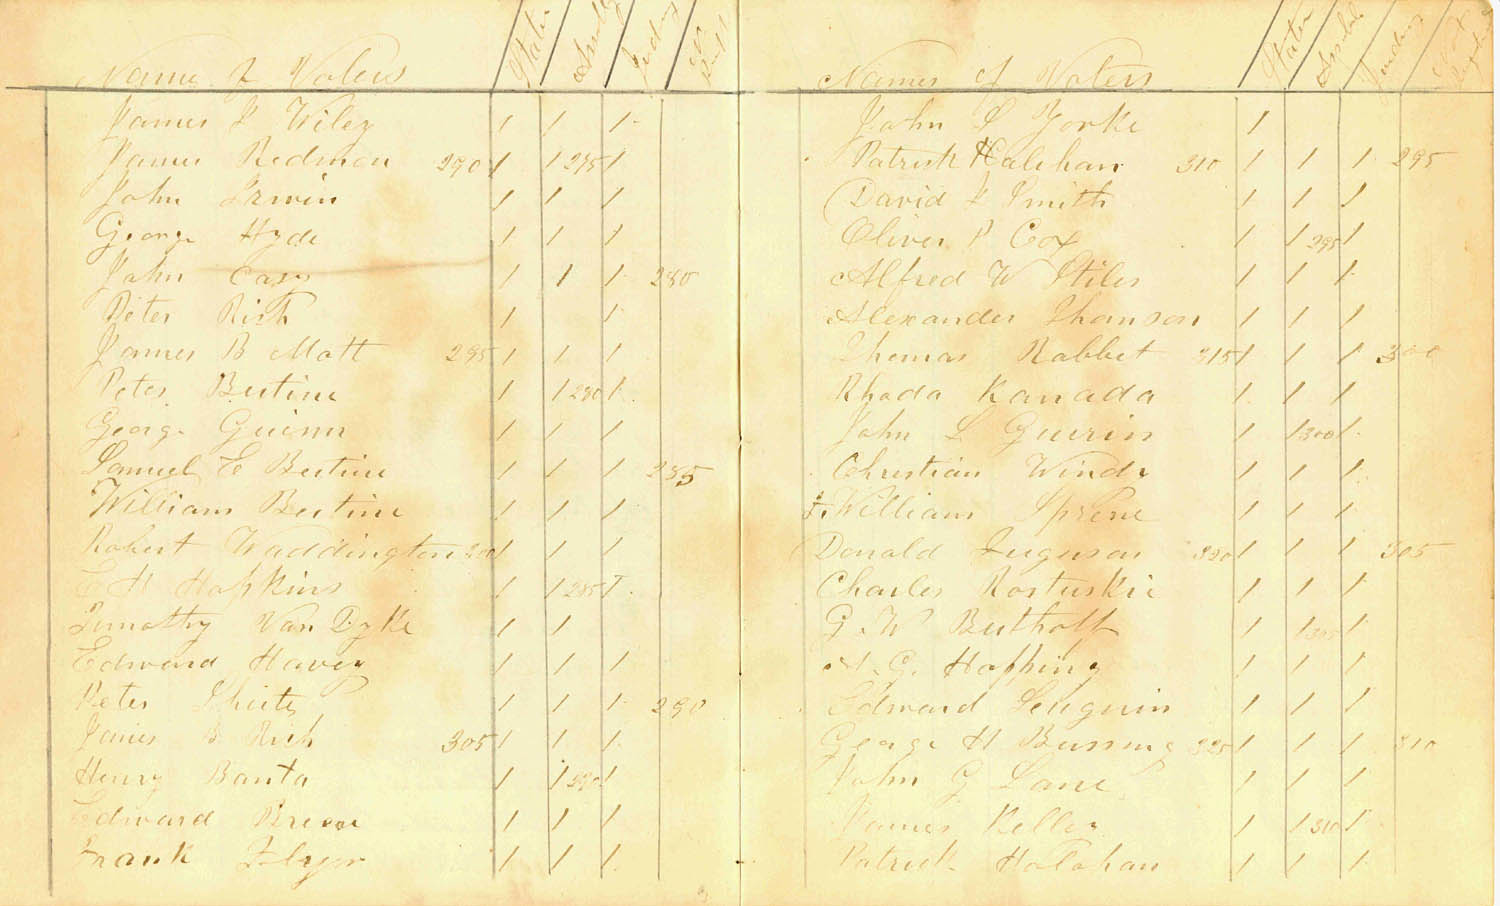 Name of Voters State Assmbly Judicy
James J Wiley 1 1 1
James Redmon 290 1 1 275 1
John Irwin 1 1 1
George Hyde 1 1 1
John Casy 1 1 1 280
Peter Rich 1 1
James B Mott 295 1 1 1
Peter Bertine 1 1 280 1
George Guinn 1 1 1
Samuel E Bertine 1 1 1 285
William Bertine 1 1 1
Robert Waddington 1 1 1
E H Hopkins 1 1 285 1
Timothy Van Dyke 1 1 1
Edward Havey 1 1 1
Peter Shute 1 1 1 290
James B Rich 305 1 1 1
Henry Banta 1 1 290 1
Edward Breen 1 1 1
Frank 1 1 1
Names of Voters State Assmbl Judicy Not
John S Yorke 1
Patrick Halihan 310 1 1 1 295
David J Smith 1 1 1
Oliver P Cox 1 1 295 1
Alfred W Stiles 1 1 1
Alexander Thomson 1 1 1
Thomas Rabbet 315 1 1 1 300
Rhoda Kanada 1 1 1
John L Guerin 1 1 300 1
Christian Winds 1 1 1
William 1 1 1
Donald Furguson 320 1 1 1 305
Charles Rostuskie 1 1 1
G. W Bertholf 1 1 305 1
A. G. Hopping 1 1 1
Edward Senguin 1 1 1
George H Bussing 325 1 1 1 310
John G Lane 1 1 1
James Keller 1 1 310 1
Patrick Holohan 1 1 1